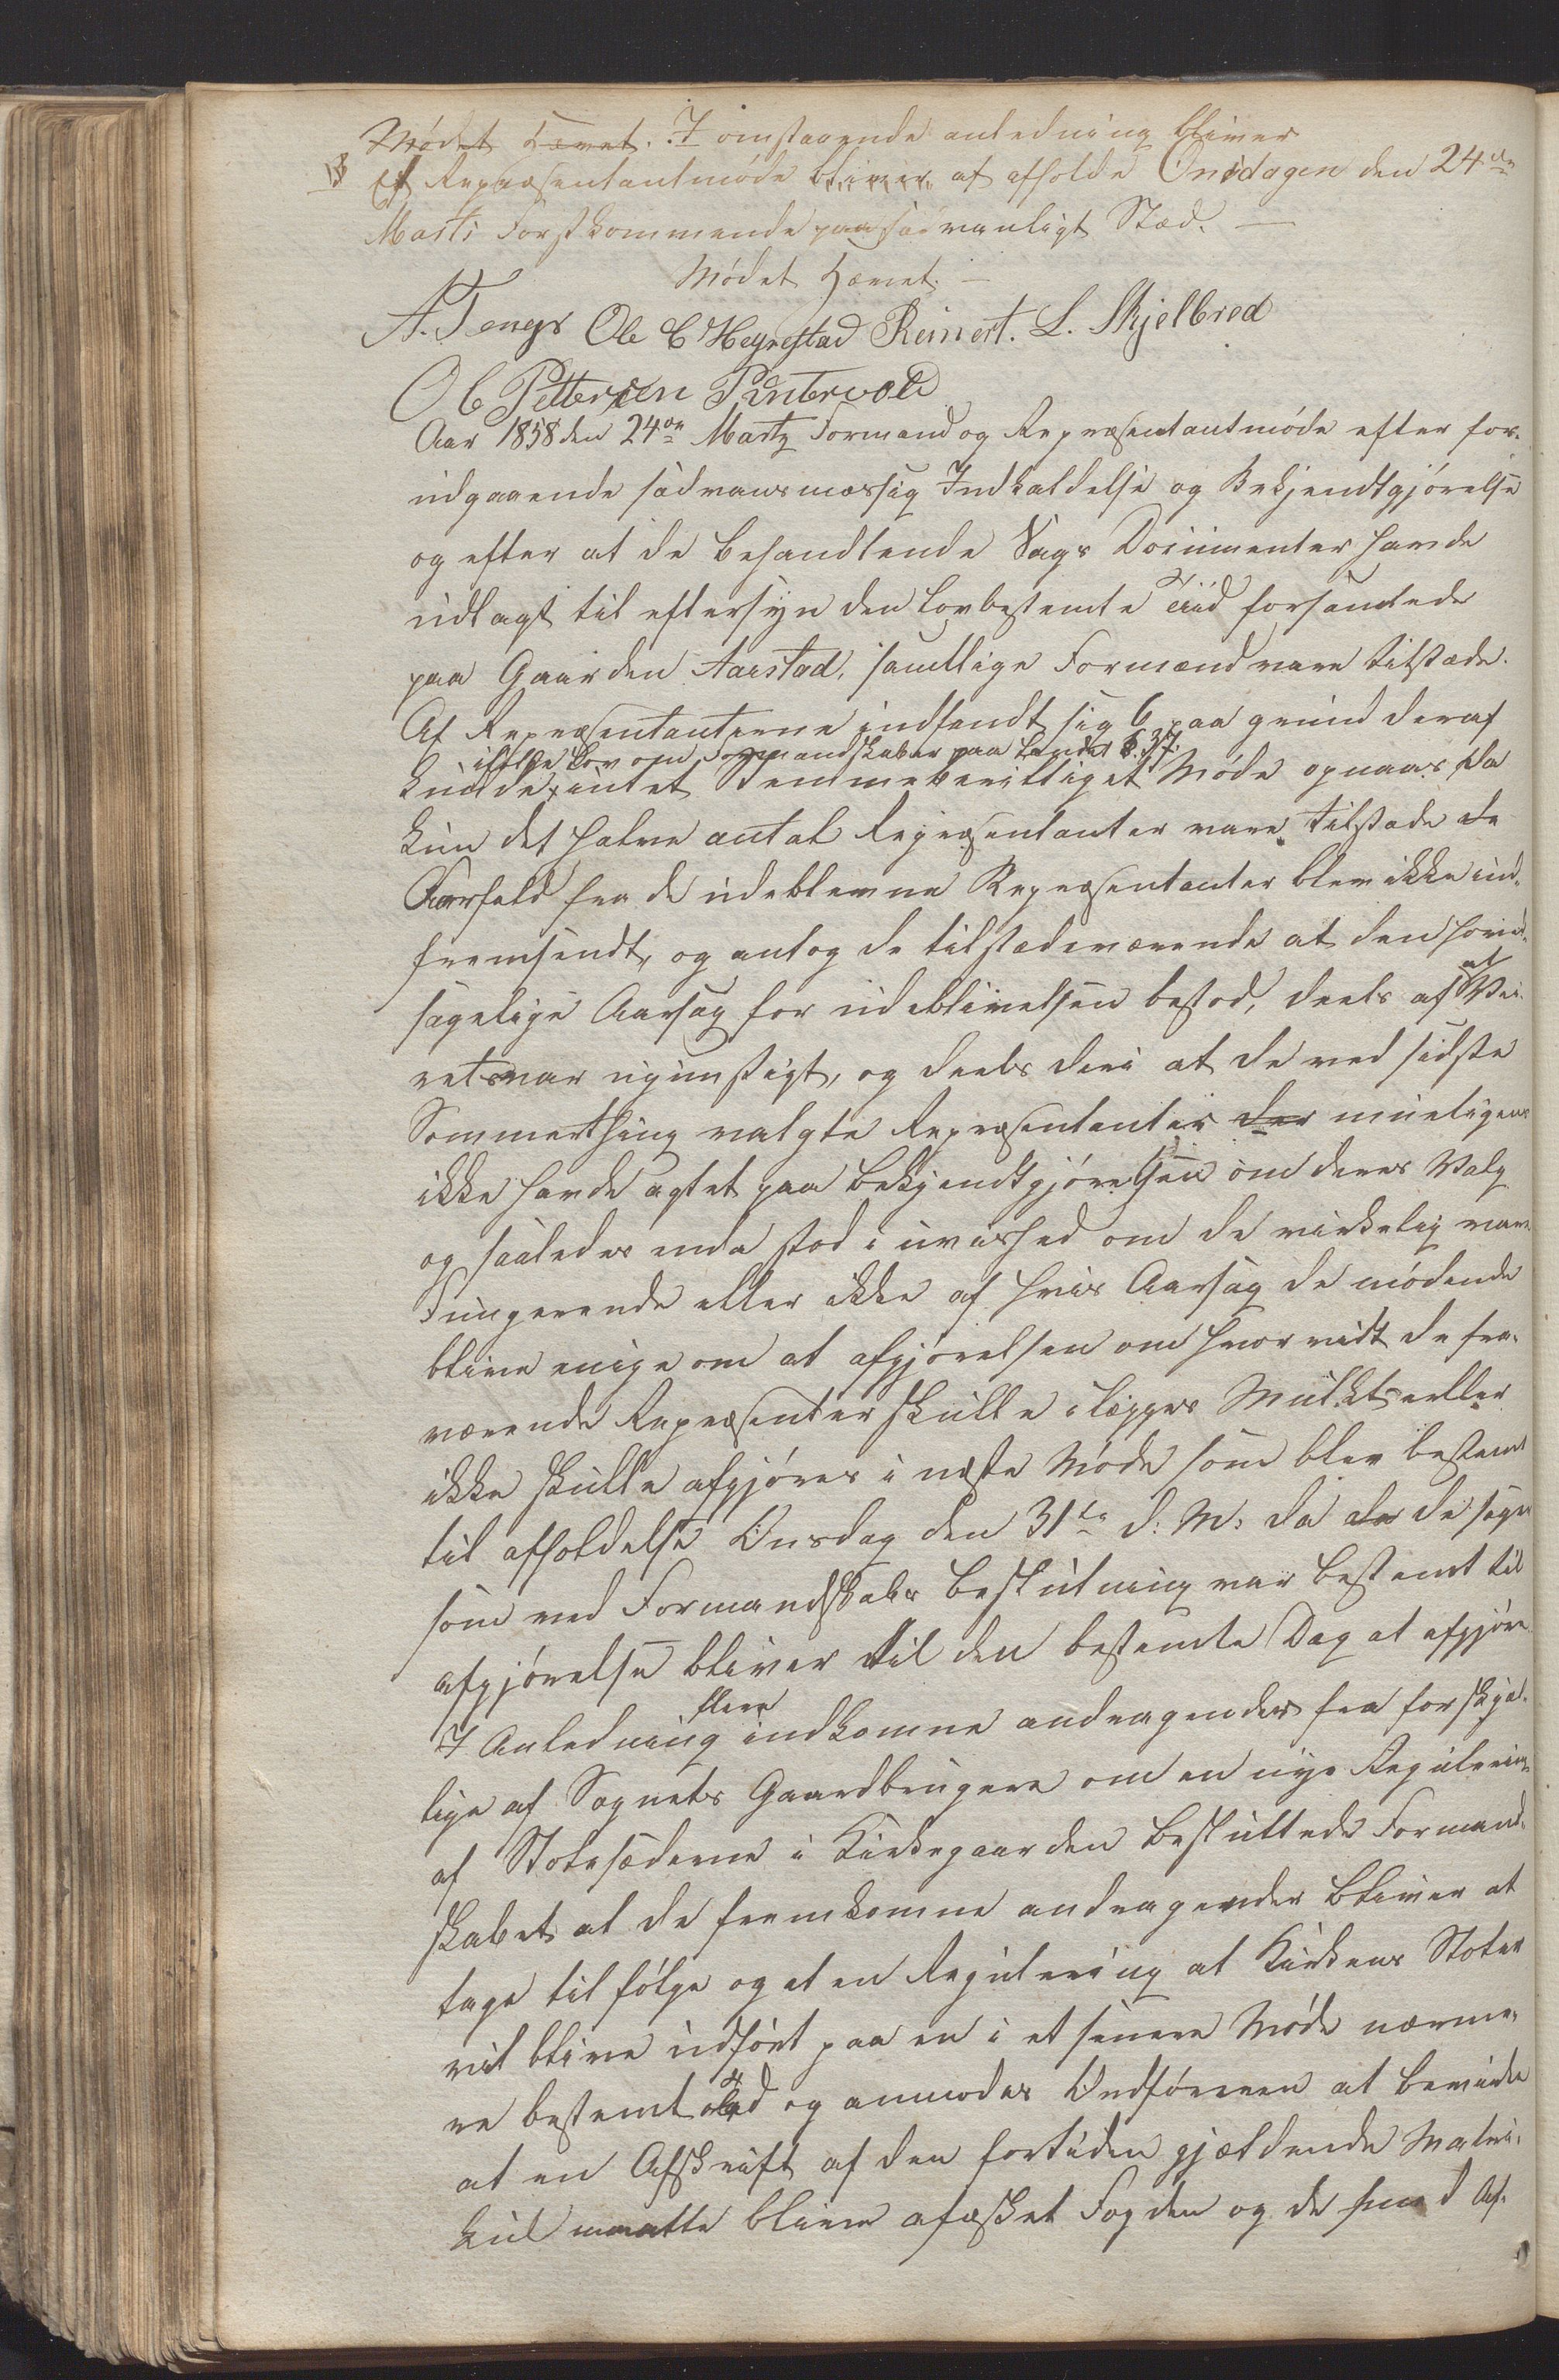 Mødet hævet. I omstaaende anledning bliver
Et Repræsentantmøde bliver at afholde Onsdagen den 24de
Marts Førstkommende paa sædvanligt Stæd. —
Mødet Hævet. —
A. Tengs Ole C Hegrestad Reinert. L. Skjelbred
O C Pettersen Puntervold
Aar 1858 den 24de Marts Formand og Repræsentantmøde efter for-
udgaaende sædvansmæssig Indkaldelse og Bekjendtgjørelse
og efter at de behandlende Sags Documenter havde
udlagt til eftersyn den lovbestemte Tiid forsamlede
paa Gaarden Aarstad, samtlige Formænd vare tilstæde.
Af Repræsentanterne indfandt sig 6, paa grund deraf
ifølge Lov om Formandskaber paa Landet §. 37.
kunde intet Stemmeberettiget Møde opnaaes da
kun det halve antal Repræsentanter vare tilstæde de
Forfald fra de udeblevne Repræsentanter blev ikke ind-
fremsendt, og antog de tilstædeværende at den hoved-
sagelige Aarsag for udeblivelsen bestod, deels af at Vei-
ret var ugunstigt, og deels deri at de ved sidste
Sommerthing valgte Repræsentanter der mueligens
ikke havde agtet paa bekjendtgjørelsen om deres Valg
og saaledes enda stod i uvished om de virkelig vare
Fungerende eller ikke af hvis Aarsag de mødende
bleve enige om at afgjørelsen om hvorvidt de fra-
værende Repræsenter skulle ilægges Mulkts eller
ikke skulle afgjøres i næste Møde som blev bestemt
til afholdelse Onsdag den 31te d: M: da da de sager
som ved Formandskabs beslutning var bestemt til
afgjørelse bliver til den bestemte Dag at afgjøre
I Anledning flere indkomne andragender fra forskjæl-
lige af Sognets Gaardbrugere om en nye Regulering
af Stolesæderne i Kirkegaarden besluttede Formand-
skabet at de fremkomne andragender bliver at
tage tilfølge og at en Regulering at Kirkens Stoler
vil blive udført paa en i et senere Møde nærme-
re bestemt Tid og anmodes Ordføreren at bevirke
at en Afskrift af den fortiden gjældende Matri-
kul maatte blive afæsket Fogden og de med Af-